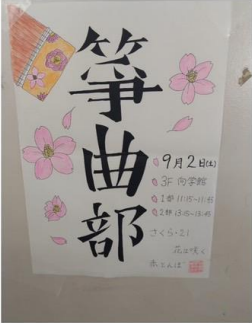 箏曲部
9月2日(土)
3F 向学館
1部 11:15~11:45
2部 13:15~13:45
さくら・21
花は咲く
赤とんぼ